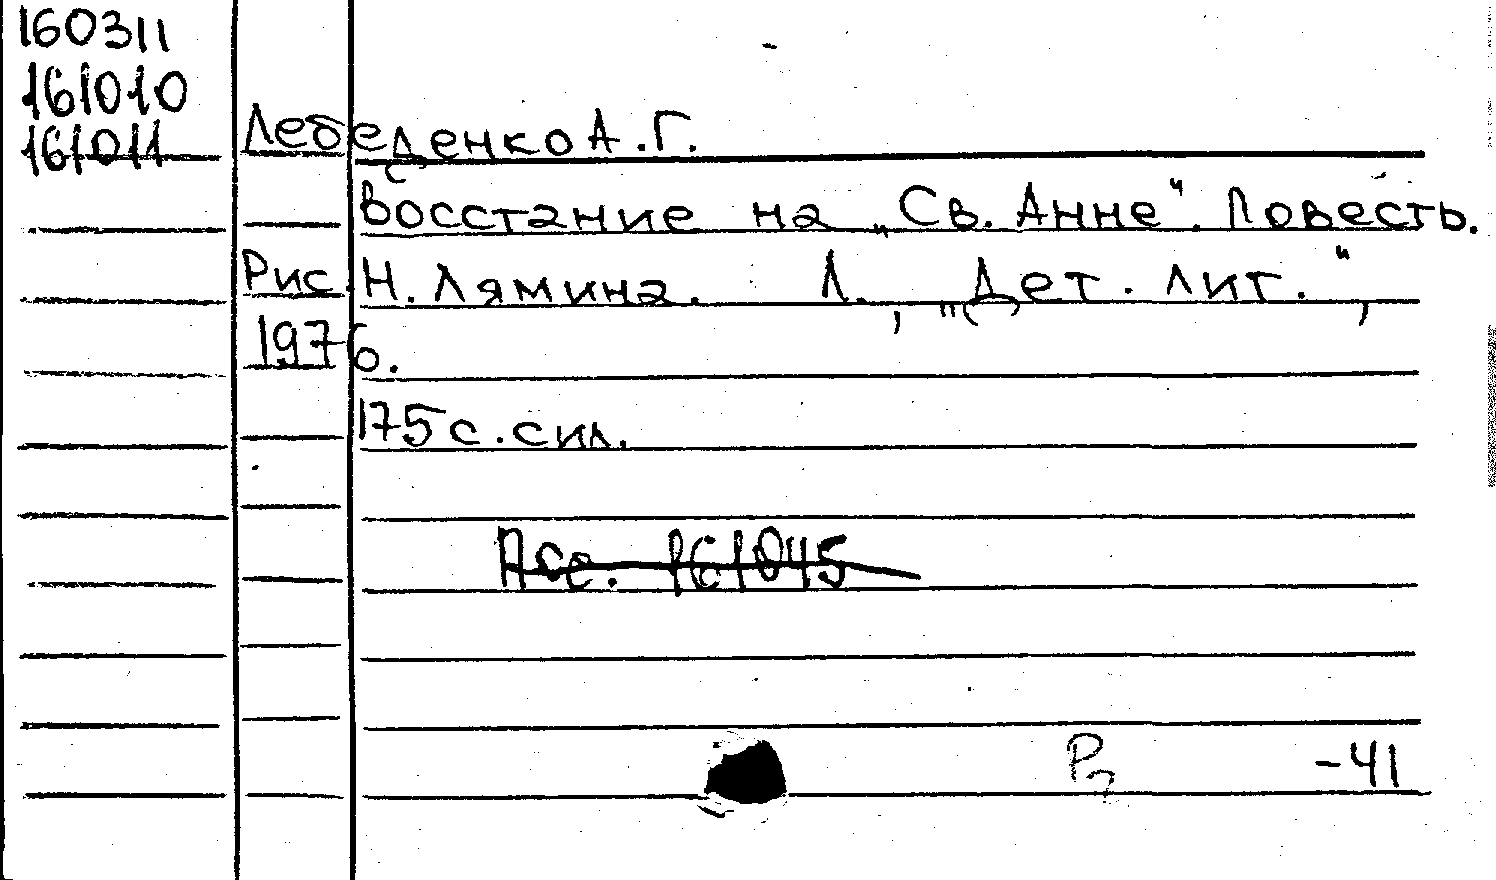 160311
161010
161011
Лебеденко А.Г.
Восстание на „Св. Анне". Повесть.
Рис. Н. Лямина. Л., „Дет. лит.",
1976.
175 с. с ил.
161045
Р2 -41